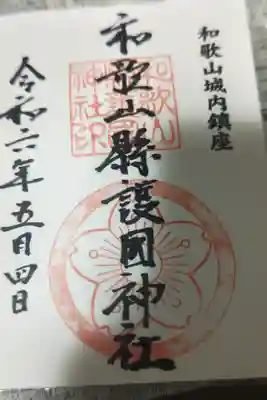 和歌山城内鎮座
和歌山縣護国神社
令和六年五月四日